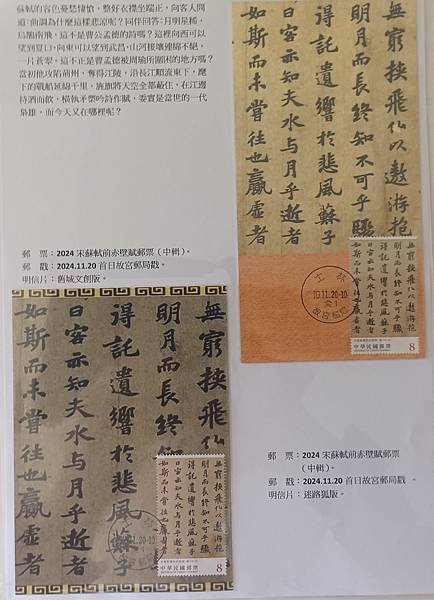 蘇軾的容色憂愁悽愴，整好衣襟坐端正，向客人問
道：曲調為什麼這樣悲涼呢？同伴回答：月明星稀，
烏鵲南飛，這不是曹公孟德的詩嗎？這裡向西可以
望到夏口，向東可以望到武昌，山河接壤連綿不絕，
一片蒼翠，這不正是曹孟德被周瑜所圍困的地方嗎？
當初他攻陷荊州，奪得江陵，沿長江順流東下，麾
下的戰船延綿千里，旌旗將天空全都蔽住，在江邊
持酒而飲，橫執矛槊吟詩作賦，委實是當世的一代
梟雄，而今天又在哪裡呢？
無窮挾飛仙以遨游抱
明月而長終知不可乎驟
得託遺響於悲風蘇子
曰客亦知夫水与月乎逝者
如斯而未嘗往也贏虛者
士林
中華民國郵票
8
郵　票：2024 宋蘇軾前赤壁賦郵票（中輯）。
郵　戳：2024.11.20 首日故宮郵局戳。
明信片：舊城文創版。
無窮挾飛仙
明月而長終
得託遺響於悲風蘇子
曰客亦知夫水与月乎逝者
如斯而未嘗往也贏虛者
中華民國郵票
8
郵　票：2024 宋蘇軾前赤壁賦郵票
（中輯）。
郵　戳：2024.11.20 首日故宮郵局戳 。
明信片：迷路狐版。